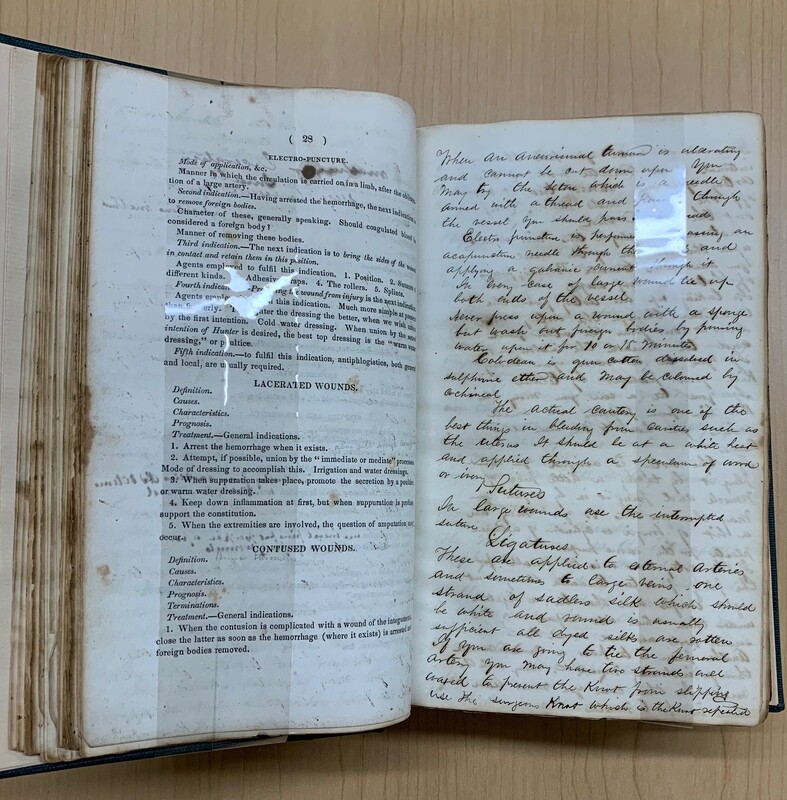 ( 28 )
ELECTRO-PUNCTURE.
Mode of application, &c.
Manner in which the circulation is carried on in a limb, after the
tion of a large artery.
Second indication.—Having arrested the hemorrhage, the next indication is
to remove foreign bodies.
Character of these, generally speaking. Should coagulated blood be
considered a foreign body?
Manner of removing these bodies.
Third indication.—The next indication is to bring the sides of the wound
in contact and retain them in this position.
Agents employed to fulfil this indication. 1. Position. 2. Sutures of
different kinds. Adhesive straps. 4. The rollers. 5. Splints.
Fourth indication. the wound from injury is the next
Agents this indication. Much more simple at present
than formerly. the dressing the better, when we wish
by the first intention. Cold water dressing. When union by the
intention of Hunter is desired, the best top dressing is the "warm water
dressing," or poultice.
Fifth indication—to fulfil this indication, antiphlogistics, both general
and local, are usually required.
LACERATED WOUNDS.
Definition.
Causes.
Characteristics.
Prognosis.
Treatment.—General indications.
1. Arrest the hemorrhage when it exists.
2. Attempt, if possible, union by the "immediate or mediate" processes.
Mode of dressing to accomplish this. Irrigation and water dressings.
3. When suppuration takes place, promote the secretion by a poultice
or warm water dressing.
4. Keep down inflammation at first, but when suppuration is profuse
support the constitution.
5. When the extremities are involved, the question of amputation may
occur.
CONTUSED WOUNDS.
Definition.
Causes.
Characteristics.
Prognosis.
Terminations.
Treatment.—General indications.
1. When the contusion is complicated with a wound of the integuments,
close the latter as soon as the hemorrhage (where it exists) is arrested and
foreign bodies removed.
When an aneurismal tumour is ulcerating
and cannot be cut down upon You
may try the seton which is a needle
armed with a thread and through
the vessel you should pass
Electro puncture is performed passing an
acupuncture needle through the and
applying a galvanic current through it
In every case of large wound tie up
both ends of the vessel
Never press upon a wound with a sponge
but wash out foreign bodies by pouring
water upon it for 10 or 15 minutes
Colodean is gun cotton dissolved in
sulphuric ether and may be coloured by
cochineal
The actual cautery is one of the
best things in bleeding from cavities such as
the uterus It should be at a white heat
and applied through a speculum of wood
or ivory
Sutures
In large wounds use the interrupted
suture
Ligatures
These are applied to external Arteries
and sometimes to large veins one
strand of sadlers silk which should
be white and round is usually
sufficient all dyed silks are rotten
If you are going to tie the femoral
artery you may have two strands well
waxed to prevent the Knot from slipping
use the surgeons Knot which is the Knot repeated